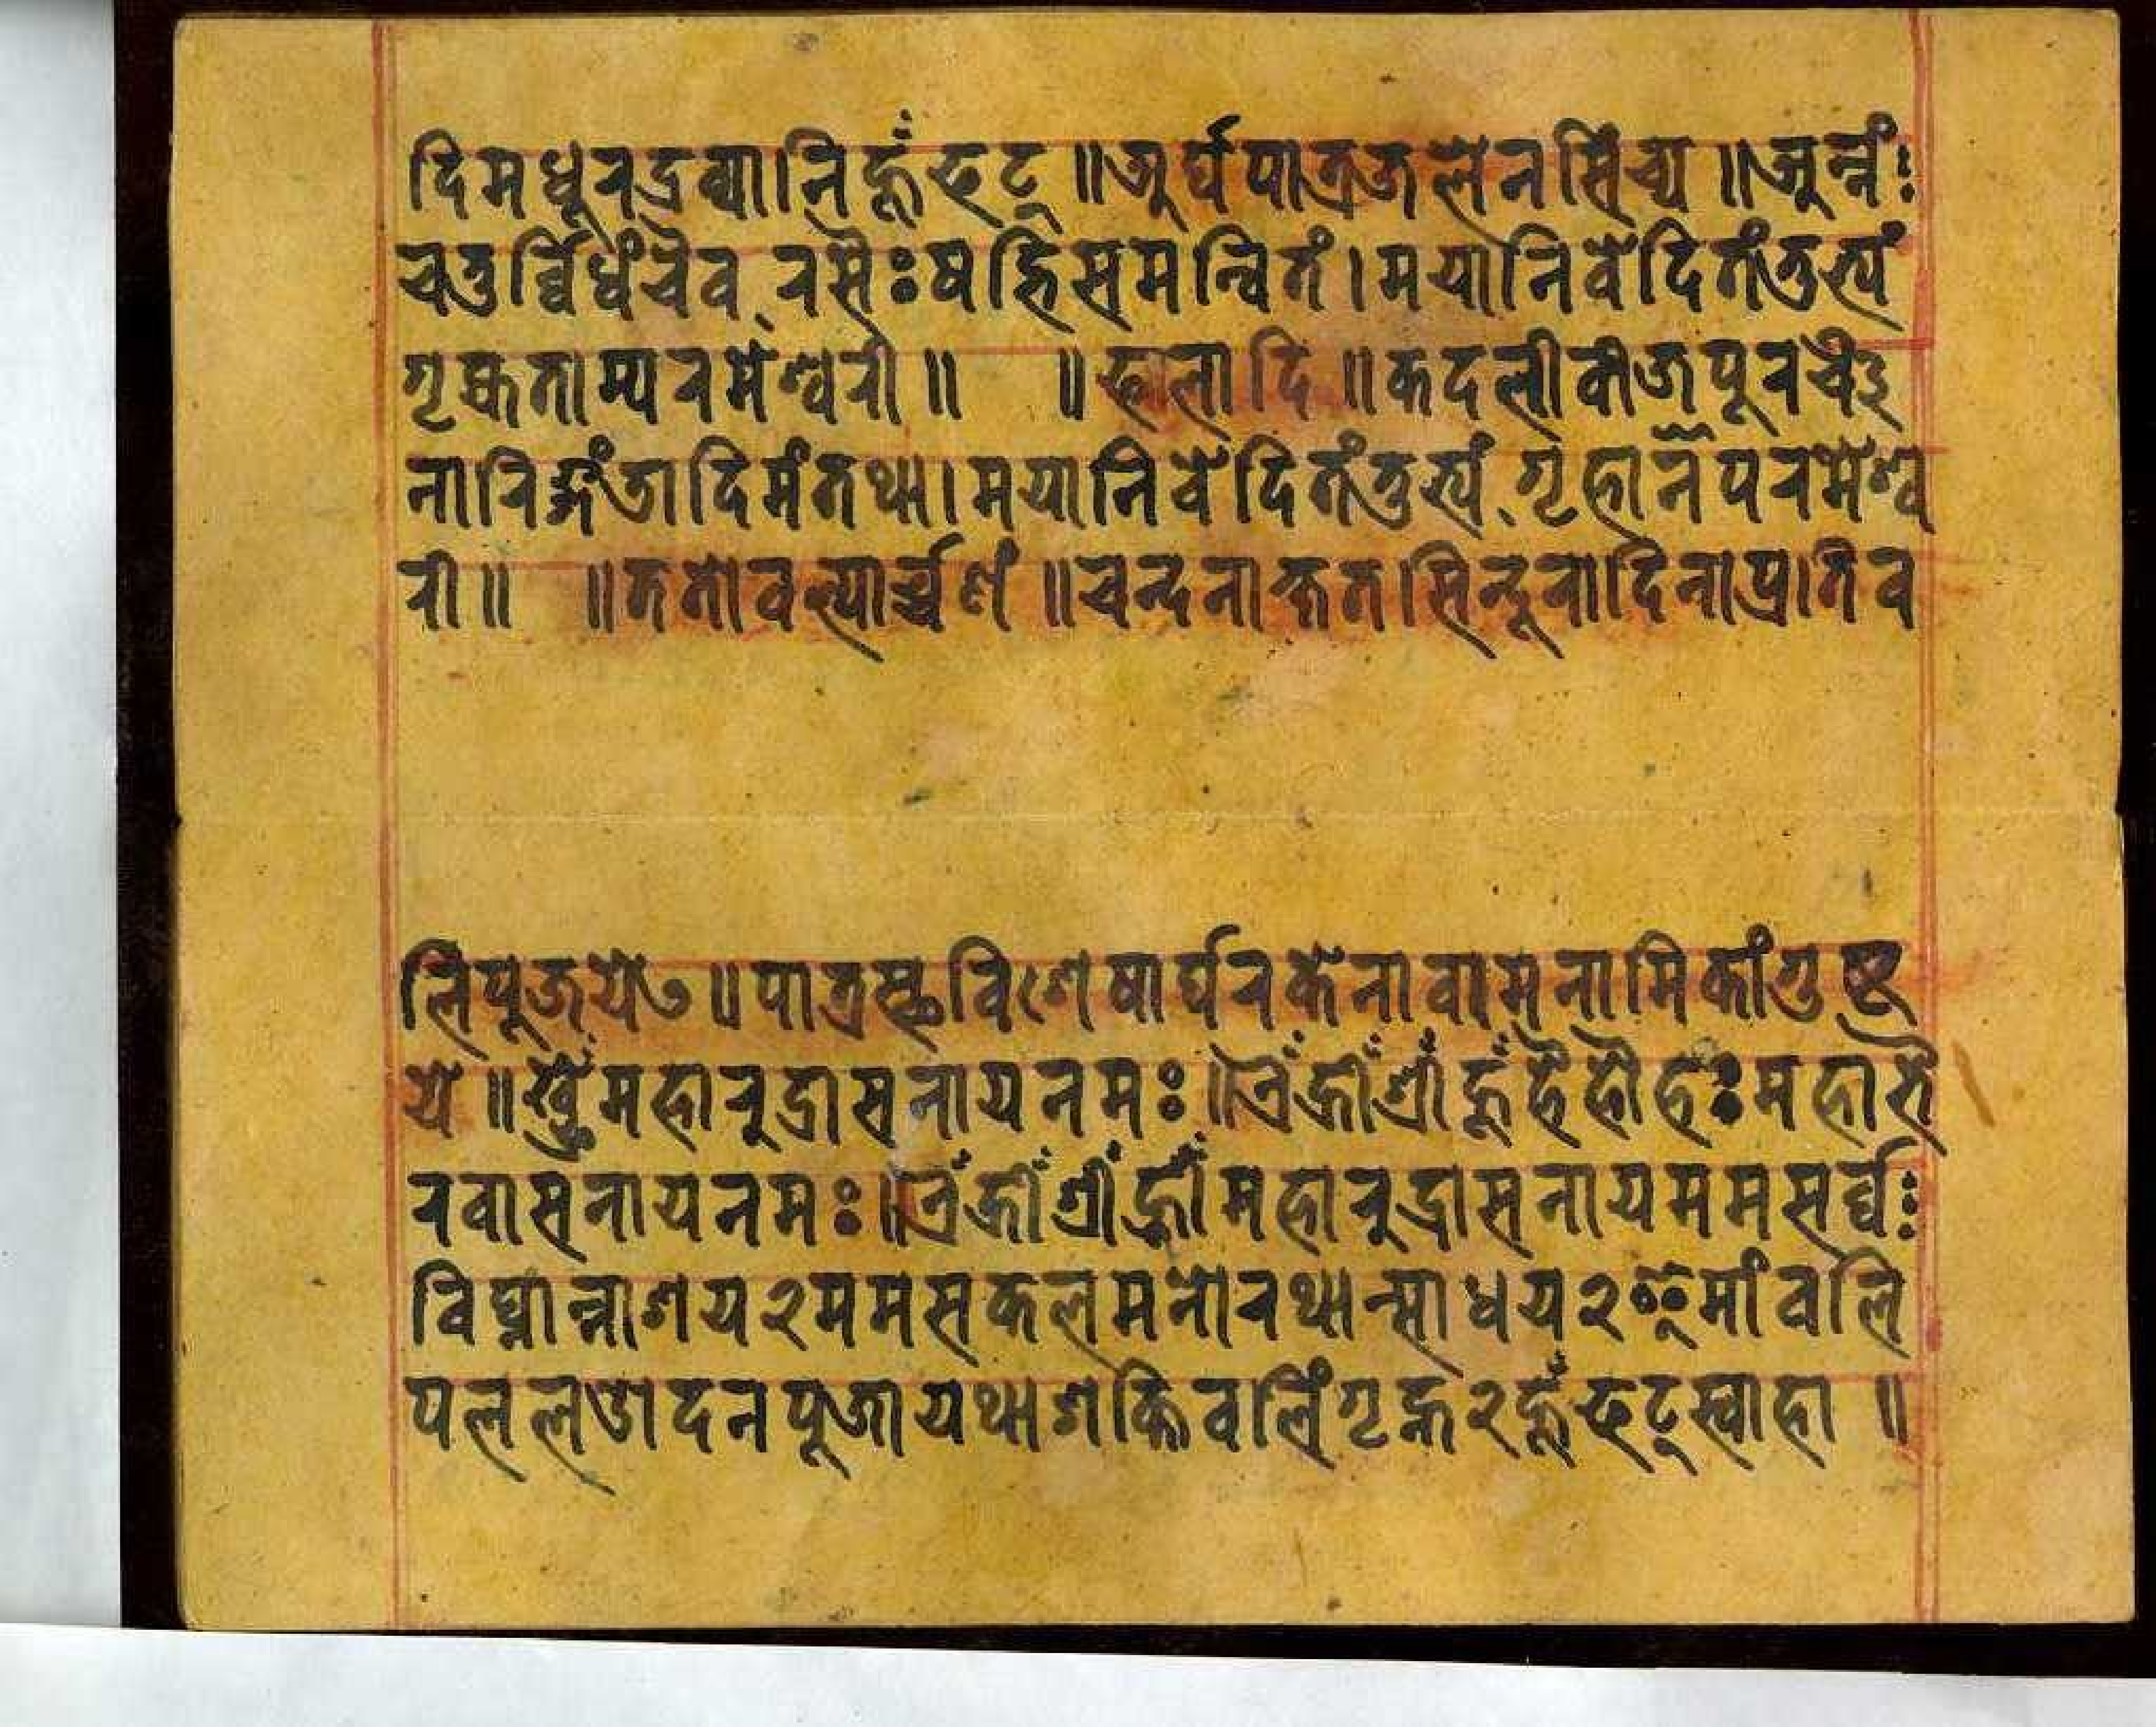 दिमधूरद्रव्यानिहूँफट् ॥ अर्घपात्रजलेनसिंच्य ॥ अन्नं
चतुर्व्विधंचैव रसैःषड्भिसमन्वितं । मयानिवेदितंतुभ्यं
गृह्यताम्परमेश्वरी ॥ ॥ फलादि ॥ कदलीवीजपूरचै
नारिङ्गंडादिमंतथा । मयानिवेदितंतुभ्यं गृहानपरमेश्व
री ॥ ॥ ततोवल्यार्च्चणं ॥ चन्दनाक्षतसिन्दूरादिनाप्रतिव
लिंपूजयेत् ॥ पात्रस्थविशेषार्घरकेनावामनामिकांगुष्ट
ये ॥ महारुद्रासनायनमः ॥ ऐँह्रीँश्रीँहूँहैहौहः महाभै
रवासनायनमः ॥ ऐँह्रीँश्रीँ महारुद्रासनायममसर्व्व
विघ्नान्नाशय२ममसकलमनोरथान्साधय२ मांवलि
पललडादनपूजायथाशक्तिवलिंगृह्ण२हूँफट्स्वाहा ॥